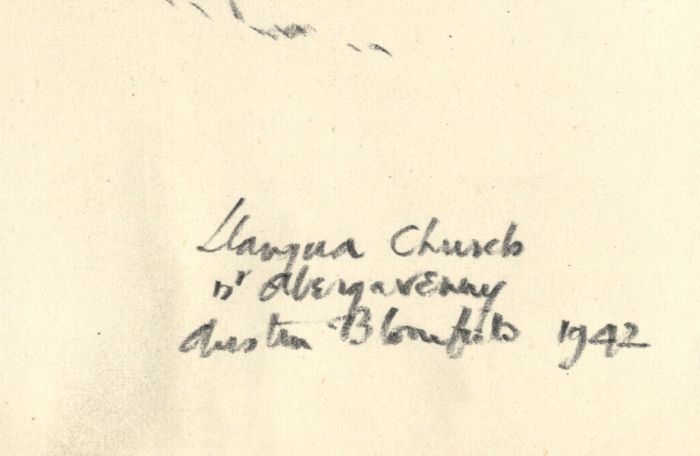 Llangua Church
nr Abergavenny
Austin Blomfield 1942